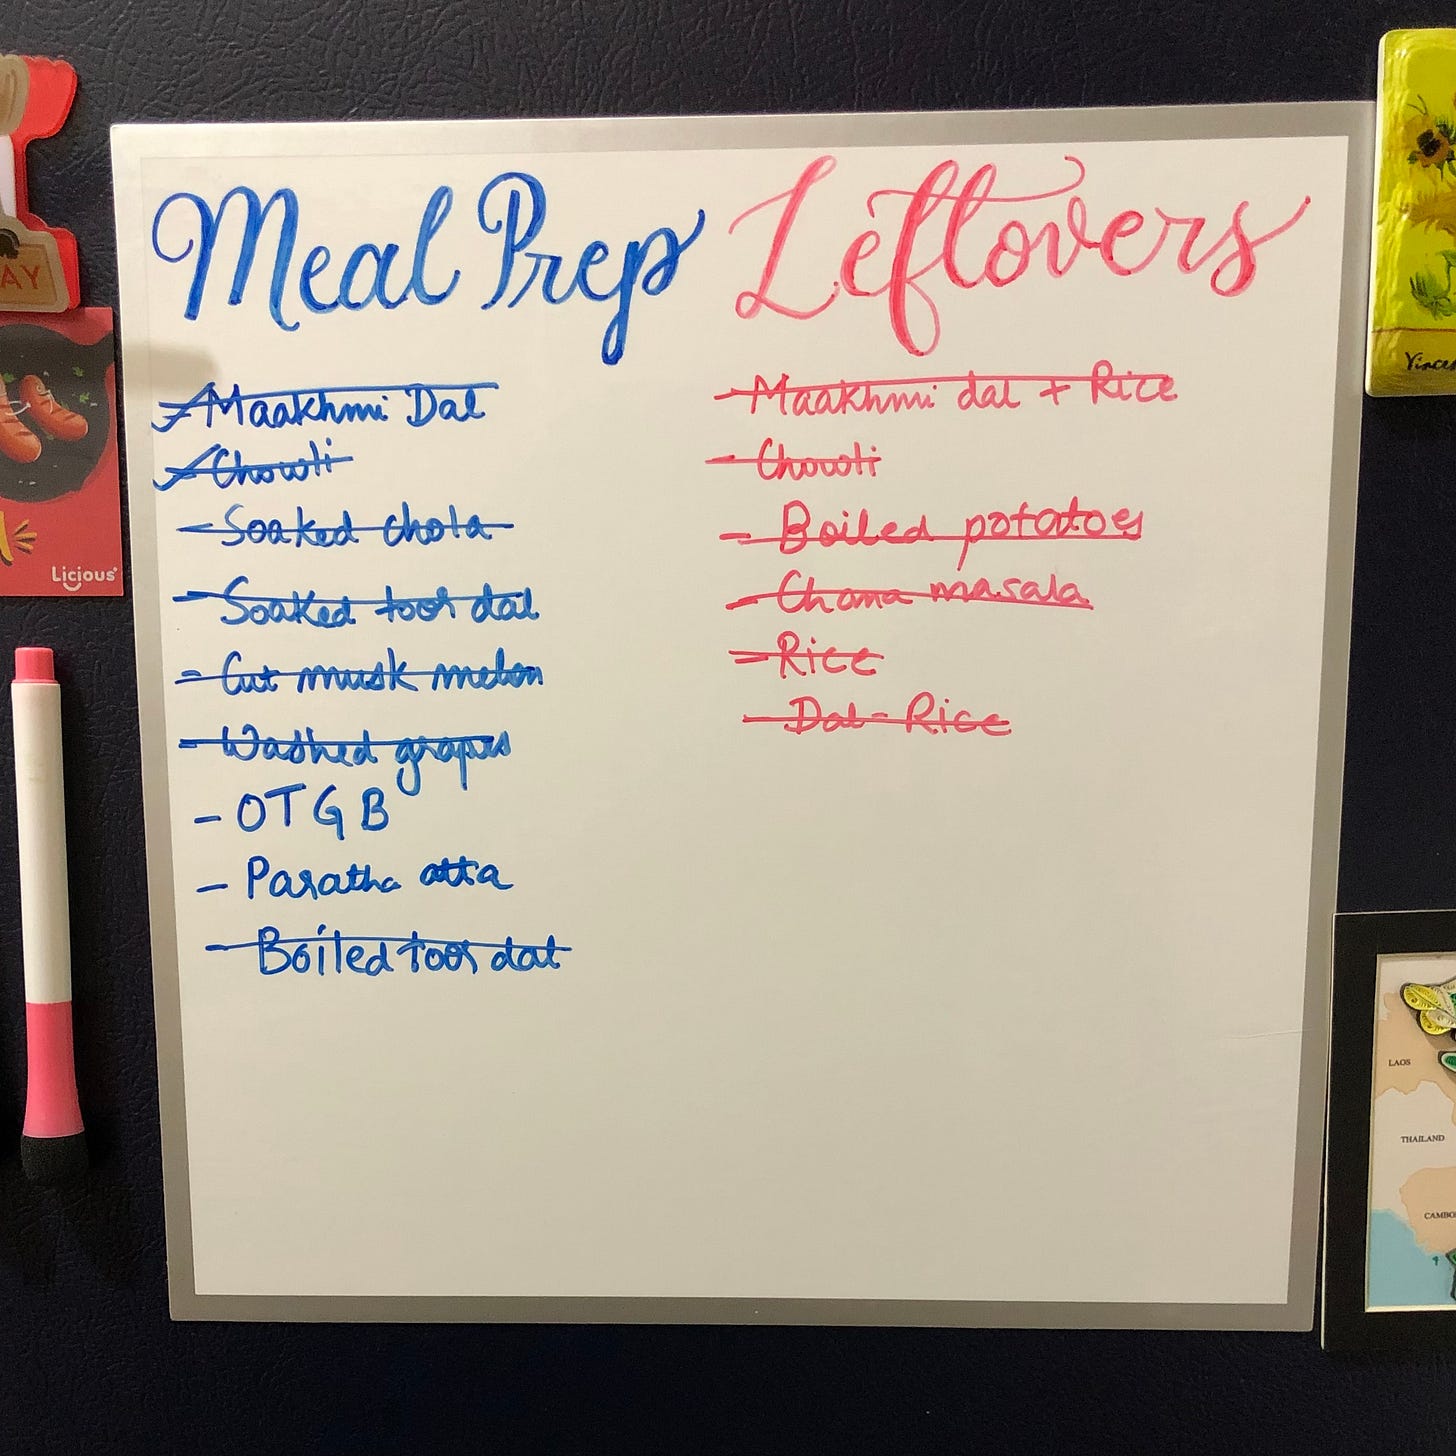 Meal Prep
Maakhmi Dal
Chowli
- Soaked chola
- Soaked toor dal
- Cut musk melon
- Washed grapes
- OTGB
- Paratha atta
- Boiled toor dal
Leftovers
- Maakhmi dal + Rice
- Chowli
- Boiled potatoes
- Chana masala
- Rice
- Dal-Rice
AY
Licious
Vincen
LAOS
THAILAND
CAMBO